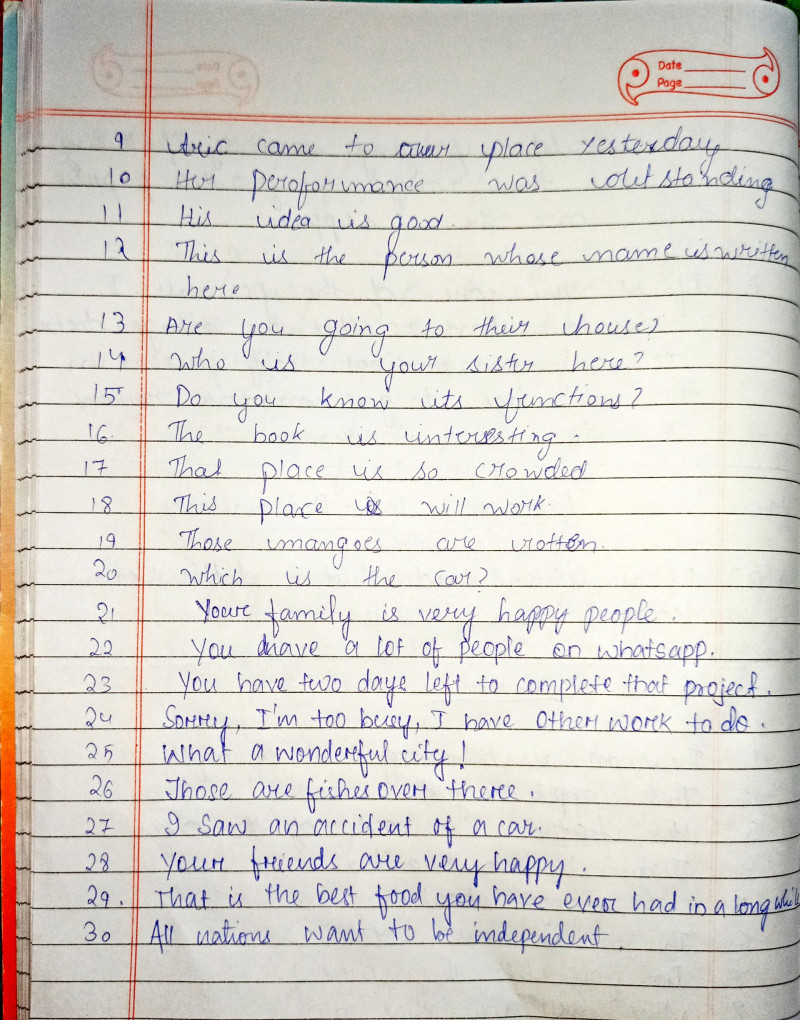 Date
Page
9 Eric came to our place yesterday
10 Her peroformance was outstanding
11 His idea is good.
12 This is the person whose name is written
here
13 Are you going to their house?
14 Who is your sister here?
15 Do you know its functions?
16. The book is interesting.
17 That place is so crowded
18 This place is will work.
19 Those mangoes are rotten.
20 Which is the car?
21 Your family is very happy people.
22 You have a lot of people on whatsapp.
23 You have two days left to complete that project.
24 Sorry, I'm too busy, I have other work to do.
25 What a wonderful city!
26 Those are fishes over there.
27 I saw an accident of a car.
28 Your friends are very happy.
29. That is the best food you have ever had in a long while
30 All nations want to be independent.